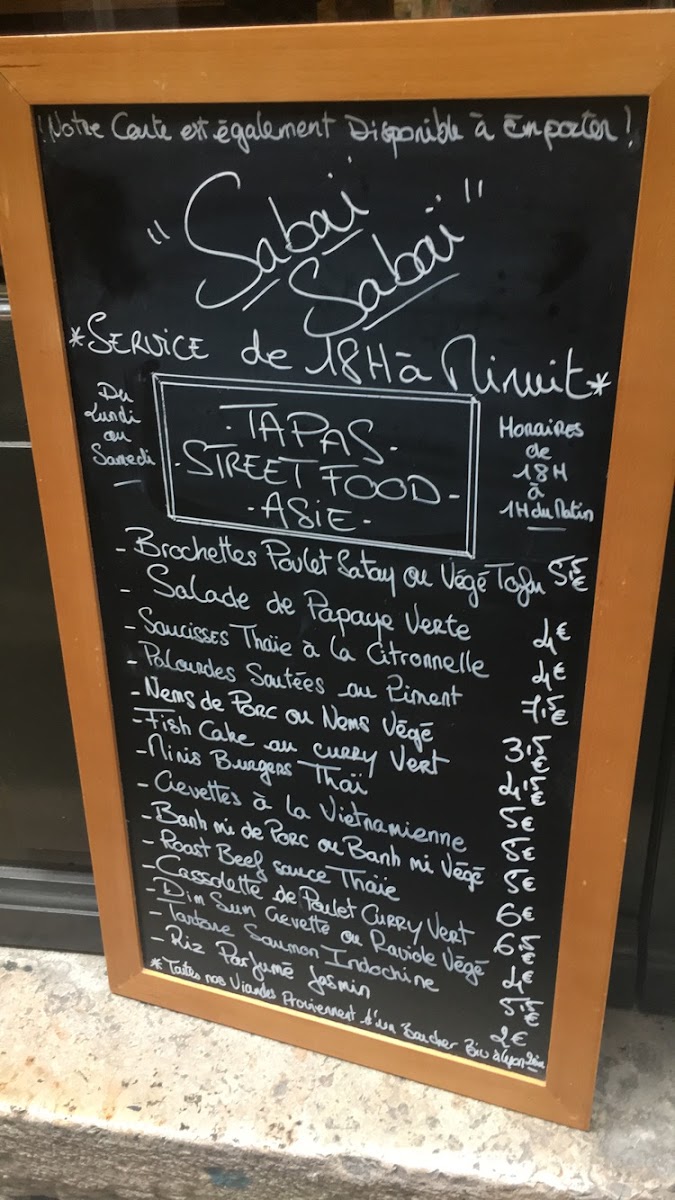 ! Notre Carte est également Disponible à Emporter !
"Sabaï
Sabaï"
*SERVICE de 18H à Minuit*
Du
Lundi
au
Samedi
· TAPAS ·
· STREET FOOD ·
· ASIE ·
HORAIRES
de
18H
à
1H du Matin
- Brochettes Poulet Satay ou Végé Tofu 5,5€
- Salade de Papaye Verte 4€
- Saucisses Thaïe à la Citronnelle 4€
- Palourdes Sautées au Piment 7,5€
- Nems de Porc ou Nems Végé 3,5€
- Fish Cake au curry Vert 4,5€
- Minis Burgers Thaï 5€
- Crevettes à la Vietnamienne 5€
- Banh mi de Porc ou Banh mi Végé 5€
- Roast Beef sauce Thaïe 6€
- Cassolette de Poulet Curry Vert 6,5€
- Dim Sum Crevette ou Raviole Végé 4€
- Tartare Saumon Indochine 5,5€
- Riz Parfumé Jasmin 2€
* Toutes nos Viandes Proviennent d'un Boucher à Lyon 2ème